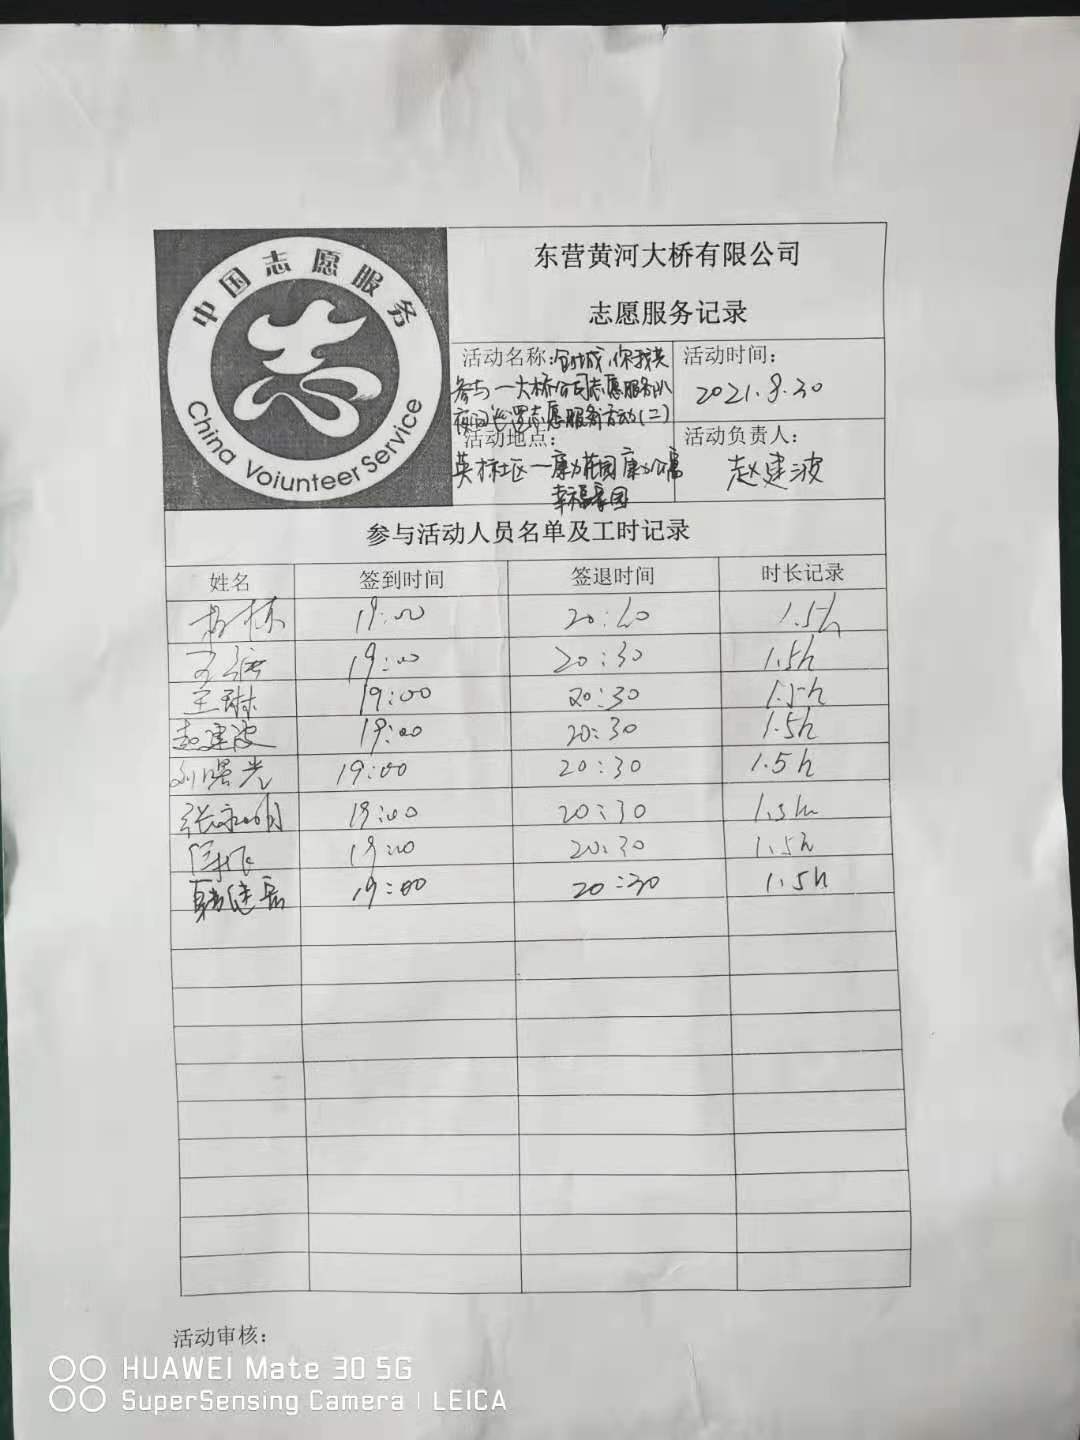 中国志愿服务
China Voiunteer Service
东营黄河大桥有限公司
志愿服务记录
活动名称:创城,你我共
参与一大桥公司志愿服务队
夜间巡逻志愿服务活动(二)
活动时间:
2021.9.30
活动地点:
英林社区一康力花园
幸福家园
活动负责人:
赵建波
参与活动人员名单及工时记录
姓名 签到时间 签退时间 时长记录
19:00 1.5h
19:00 20:30 1.5h
王琳 19:00 20:30 1.5h
赵建波 19:00 20:30 1.5h
刘曙光 19:00 20:30 1.5h
张永明 19:00 20:30 1.5h
19:00 20:30 1.5h
19:00 20:30 1.5h
活动审核:
HUAWEI Mate 30 5G
SuperSensing Camera | LEICA